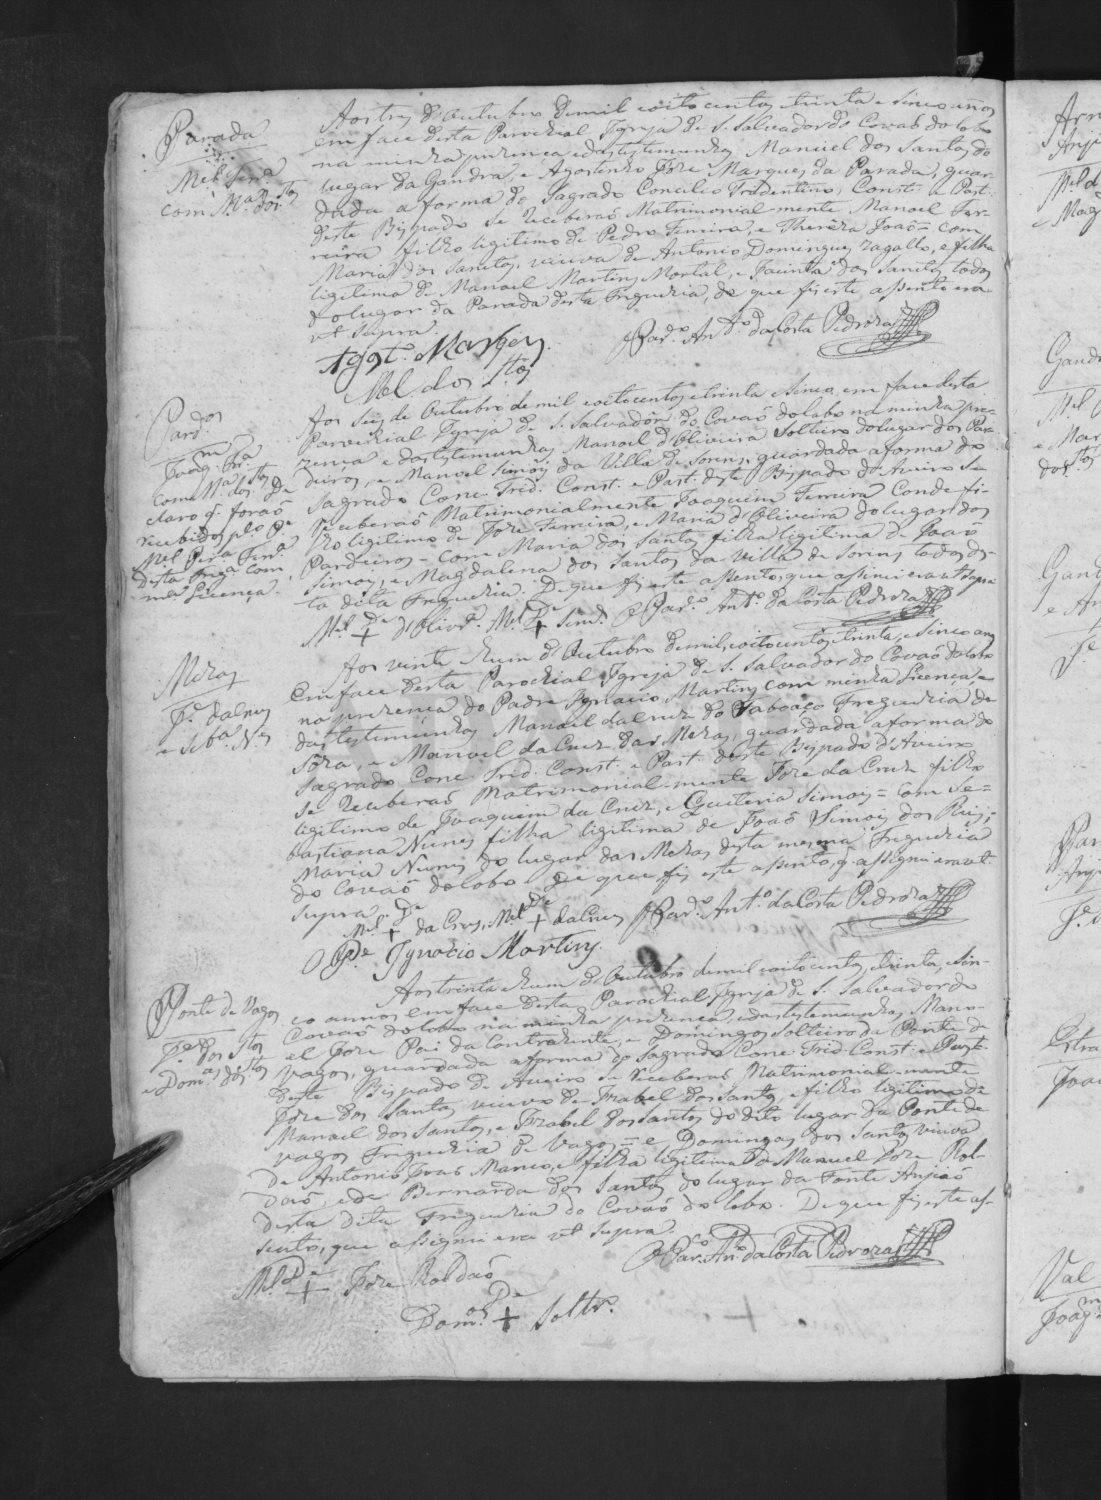 Parada
Mel. Ferra.
com Ma. dos Stos
Aos tres d'Outubro de mil e oito centos e trinta e sinco annos
em face desta Parochial Igreja de S. Salvador do Covaõ do lobo
na minha prezença e das testemunhas Manuel dos Santos do
lugar da Gandra, e Agostinho Joze Marques da Parada, guar-
dada a forma do Sagrado Concilio Tridentino, Const. e Past.
deste Bispado se Receberaõ Matrimonial-mente Manoel Fer-
reira filho ligitimo de Pedro Ferreira, e Thereza Joaõ = com
Maria dos Santos, viuva de Antonio Domingues Zagallo, e filha
ligitima de Manoel Martins Mortal, e Jacinta dos Santos todos
do lugar da Parada desta Freguezia, de que fis este assento era
ut supra.
O Paro. Anto. da Costa Pedroza
Agto. Marques.
Mel. dos Stos
Pardos
Joaqm Fra.
com Ma. dos Stos De
claro q. foraõ
recibidos plo Pe
Mel
desta Frega. com
ma Licença.
Aos seis de Outubro de mil e oitocentos e trinta e sinco em face desta
Parochial Igreja de S. Salvador do Covaõ do lobo na minha pre-
zença e das testemunhas Manoel d'Oliveira Solteiro do lugar dos Par-
deiros, e Manoel Simois da Villa de Soreins, guardada a forma do
Sagrado Conc. Trid. Const. e Past. deste Bispado de Aveiro se
Receberaõ Matrimonialmente Joaquim Ferreira Conde fi-
lho ligitimo de Joze Ferreira, e Maria d'Oliveira do lugar dos
Pardeiros - com Maria dos Santos filha ligitima de Joaõ
Simois, e Magdalena dos Santos da Villa de Soreins, todos des-
ta dita Freguezia. De que fis este assento, que assinei era ut supra
Mel. + d'Olivra. Mel. + Simo. O Paro. Anto. da Costa Pedroza
Mezas
Je. da Crus
e Seba. Nes
Aos vinte e hum d'Outubro de mil, e oitocentos, e trinta, e sinco annos
em face desta Parochial Igreja de S. Salvador do Covaõ do lobo
na prezença do Padre Ignacio Martins com minha Licença, e
das testemunhas Manoel da Crus do Taboaço Freguezia de
Sôza, e Manoel da Cruz das Mezas, guardada a forma do
Sagrado Conc. Trid. Const. e Past. deste Bispado d'Aveiro
se Receberaõ Matrimonial-mente Joze da Crus filho
ligitimo de Joaquim da Crus, e Guiteria Simois = com Se=
bastiana Nunes filha ligitima de Joaõ Simois dos Reis,
Maria Nunes do lugar das Mezas desta mesma Freguezia
do Covaõ do lobo. De que fis este assento, q. assignei era ut
supra
Mel. + da Crus, Mel. + da Crus O Paro. Anto. da Costa Pedroza
O Pe. Ignácio Martins.
Ponte de Vagos
Je. dos Stos
e Domas. dos Stos
Aos trinta e hum d'Outubro de mil e oito centos, e trinta, e sin-
co annos em face desta Parochial Igreja de S. Salvador do
Covaõ do lobo na minha prezença, e das testemunhas Mano-
el Joze Pai da Contrahente, e Domingos Solteiro da Ponte de
Vagos, guardada a forma do Sagrado Conc. Trid. Const. e Past.
deste Bispado de Aveiro se Receberaõ Matrimonial-mente
Joze dos Santos viuvo de Izabel dos Santos, e filho ligitimo de
Manoel dos Santos, e Izabel dos Santos do dito lugar da Ponte de
Vagos Freguezia de Vagos = e Domingas dos Santos viuva
de Antonio Joaõ Manco, e filha ligitima de Manuel Joze Rol-
daõ, e de Bernarda dos Santos do lugar da Fonte Anjiaõ
desta dita Freguezia do Covaõ do lobo. De que fis este as-
sento, que assignei era ut supra
O Paro. Anto. da Costa Pedroza
Mel. + Joze Roldaõ
Domos. + Soltro.